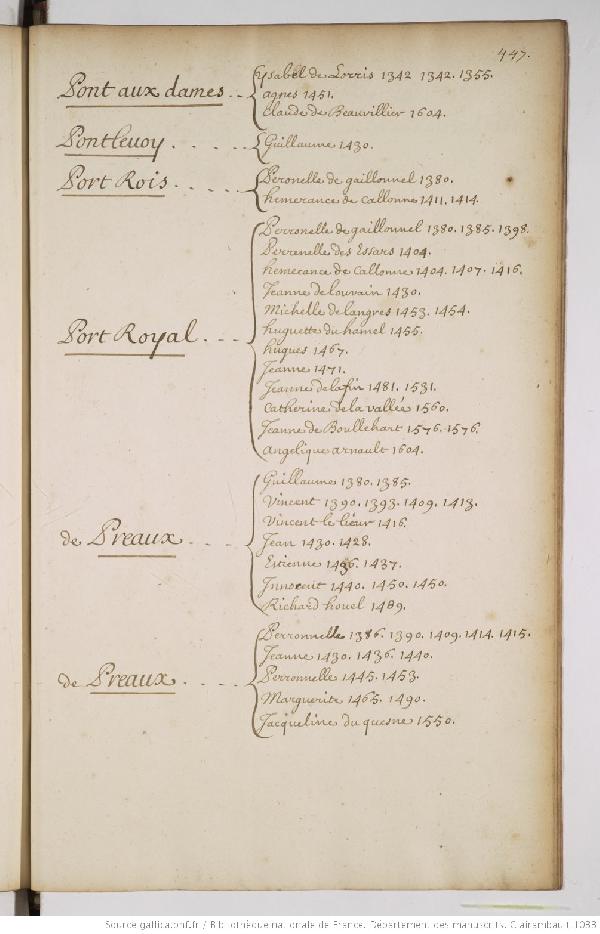 447.
Pont aux dames . . . Ysabel de Lorris 1342 1342. 1355.
agnes 1451.
Claude de Beauvillier 1604.
Pontlevoy . . . . . . Guillaume 1430.
Port Rois . . . . . . Peronelle de gaillonnel 1380.
hemerance de Callonne 1411. 1414.
Perronelle de gaillonnel 1380. 1385. 1398.
Perrenelle des Essars 1404.
hemerance de Callonne 1404. 1407. 1416.
Jeanne de louvain 1430.
Michelle de langres 1453. 1454.
huguette du hamel 1455.
Port Royal . . .
hugues 1467.
Jeanne 1471.
Jeanne dela fin 1481. 1531.
Catherine de la vallée 1560.
Jeanne de Boullehart 1576. 1576.
angelique arnault 1604.
Guillaume 1380. 1385.
Vincent 1390. 1393. 1409. 1413.
Vincent le lieur 1416.
de Preaux . . . . Jean 1430. 1428.
Estienne 1436. 1437.
Innocent 1440. 1450. 1450.
Richard houel 1489.
Perronnelle 1386. 1390. 1409. 1414. 1415.
Jeanne 1430. 1436. 1440.
de Preaux . . . . Perronnelle 1445. 1453.
Marguerite 1465. 1490.
Jacqueline du quesne 1550.
Source gallica.bnf.fr / Bibliothèque nationale de France. Département des manuscrits. Clairambault 1033